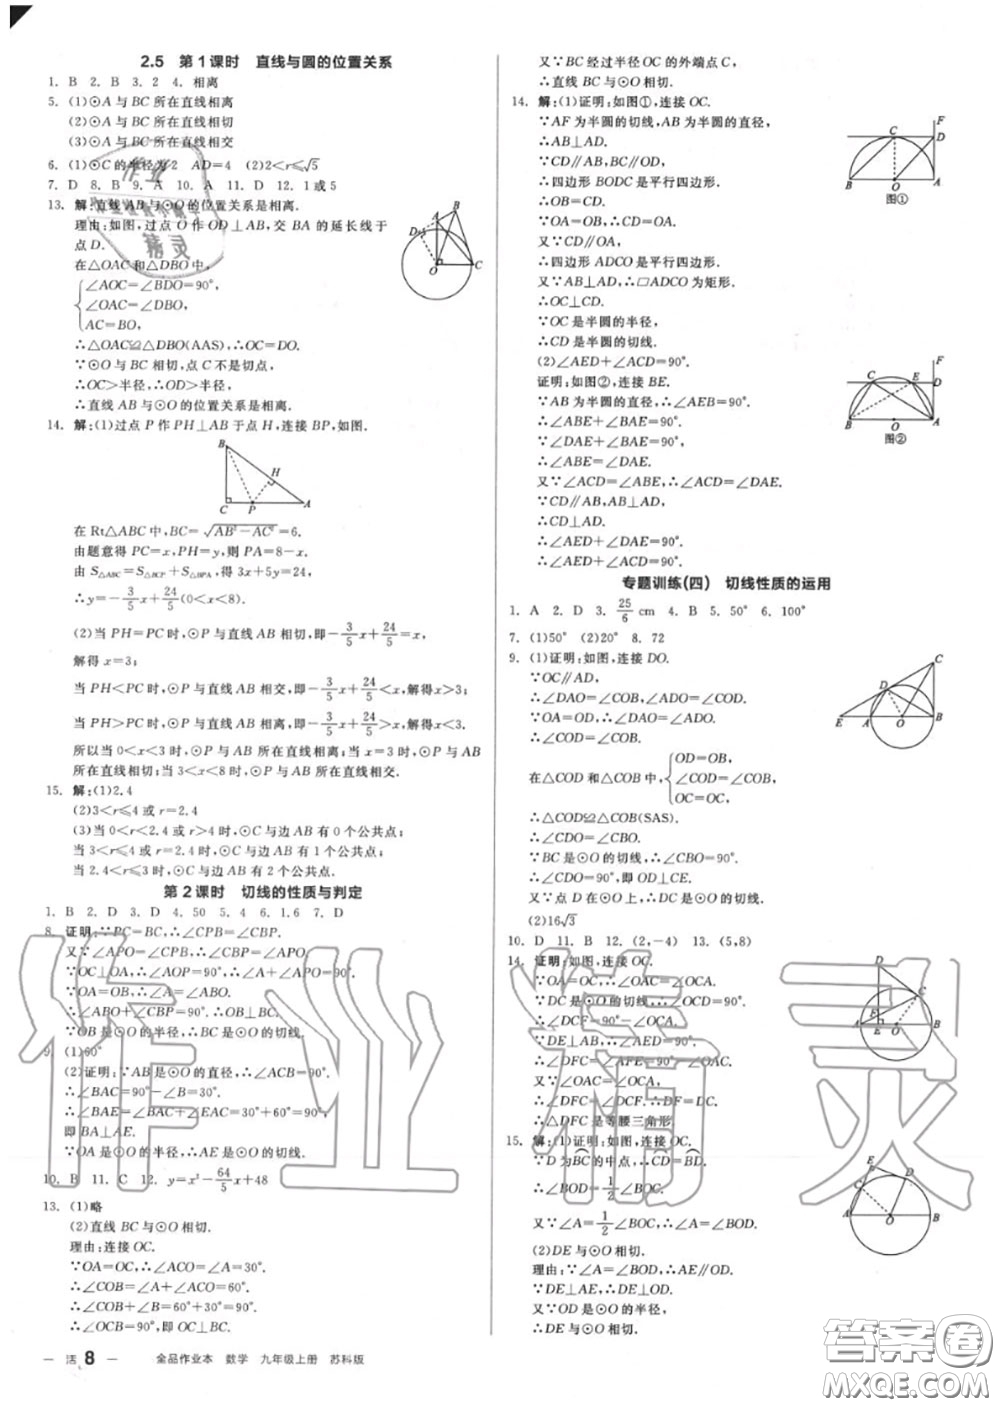 2.5 第1课时 直线与圆的位置关系
1. B 2. B 3. 2 4. 相离
5. (1)⊙A与BC所在直线相离
(2)⊙A与BC所在直线相切
(3)⊙A与BC所在直线相交
6. (1)⊙C的半径为2 AD=4 (2)2<r≤√5
7. D 8. B 9. A 10. A 11. D 12. 1或5
13. 解:直线AB与⊙O的位置关系是相离.
理由:如图,过点O作OD⊥AB,交BA的延长线于
点D.
在△OAC和△DBO中,
∠AOC=∠BDO=90°,
∠OAC=∠DBO,
AC=BO,
∴△OAC≌△DBO(AAS),∴OC=DO.
∵⊙O与BC相切,点C不是切点,
∴OC>半径,∴OD>半径,
∴直线AB与⊙O的位置关系是相离.
14. 解:(1)过点P作PH⊥AB于点H,连接BP,如图.
在Rt△ABC中,BC=√(AB²-AC²)=6.
由题意得PC=x,PH=y,则PA=8-x.
由S△ABC=S△BCP+S△BPA,得3x+5y=24.
∴y=-3/5x+24/5(0<x<8).
(2)当PH=PC时,⊙P与直线AB相切,即-3/5x+24/5=x,
解得x=3;
当PH<PC时,⊙P与直线AB相交,即-3/5x+24/5<x,解得x>3;
当PH>PC时,⊙P与直线AB相离,即-3/5x+24/5>x,解得x<3.
所以当0<x<3时,⊙P与直线AB所在直线相离;当x=3时,⊙P与AB
所在直线相切;当3<x<8时,⊙P与AB所在直线相交.
15. 解:(1)2.4
(2)3<r≤4或r=2.4
(3)当0<r<2.4或r>4时,⊙C与边AB有0个公共点;
当3<r≤4或r=2.4时,⊙C与边AB有1个公共点;
当2.4<r≤3时,⊙C与边AB有2个公共点.
第2课时 切线的性质与判定
1. B 2. D 3. D 4. 50 5. 4 6. 1.6 7. D
8. 证明:∵PC=BC,∴∠CPB=∠CBP.
又∵∠APO=∠CPB,∴∠CBP=∠APO.
∵OC⊥OA,∴∠AOP=90°,∴∠A+∠APO=90°.
∵OA=OB,∴∠A=∠ABO.
∴∠ABO+∠CBP=90°.∴OB⊥BC.
∵OB是⊙O的半径,∴BC是⊙O的切线.
9. (1)60°
(2)证明:∵AB是⊙O的直径,∴∠ACB=90°.
∴∠BAC=90°-∠B=30°.
∴∠BAE=∠BAC+∠EAC=30°+60°=90°,
即BA⊥AE.
∵OA是⊙O的半径,∴AE是⊙O的切线.
10. B 11. C 12. y=x²-64/5x+48
13. (1)略
(2)直线BC与⊙O相切.
理由:连接OC.
∵OA=OC,∴∠ACO=∠A=30°.
∴∠COB=∠A+∠ACO=60°.
∴∠COB+∠B=60°+30°=90°.
∴∠OCB=90°,即OC⊥BC.
又∵BC经过半径OC的外端点C,
∴直线BC与⊙O相切.
14. 解:(1)证明:如图①,连接OC.
∵AF为半圆的切线,AB为半圆的直径,
∴AB⊥AD.
∵CD∥AB,BC∥OD,
∴四边形BODC是平行四边形.
∴OB=CD.
∵OA=OB,∴CD=OA.
又∵CD∥OA,
∴四边形ADCO是平行四边形.
又∵AB⊥AD,∴▱ADCO为矩形.
∴OC⊥CD.
∵OC是半圆的半径,
∴CD是半圆的切线.
(2)∠AED+∠ACD=90°.
证明:如图②,连接BE.
∵AB为半圆的直径,∴∠AEB=90°.
∴∠ABE+∠BAE=90°.
∵∠DAE+∠BAE=90°,
∴∠ABE=∠DAE.
又∵∠ACD=∠ABE,∴∠ACD=∠DAE.
∵CD∥AB,AB⊥AD,
∴CD⊥AD.
∴∠DAE+∠AED=90°.
∴∠ACD+∠AED=90°.
图①
图②
专题训练(四) 切线性质的运用
1. A 2. D 3. 25/6 cm 4. B 5. 50° 6. 100°
7. (1)50° (2)20° 8. 72
9. (1)证明:如图,连接DO.
∵OC∥AD,
∴∠DAO=∠COB,∠ADO=∠COD.
∵OA=OD,∴∠DAO=∠ADO.
∴∠COD=∠COB.
在△COD和△COB中,
OD=OB,
∠COD=∠COB,
OC=OC,
∴△COD≌△COB(SAS).
∴∠CDO=∠CBO.
∵BC是⊙O的切线,∴∠CBO=90°.
∴∠CDO=90°,即OD⊥CE.
又∵点D在⊙O上,∴CD是⊙O的切线.
(2)16√3
10. D 11. B 12. (2,-4) 13. (5,8)
14. 证明:如图,连接OC.
∵OA=OC,∴∠OAC=∠OCA.
∵DC是⊙O的切线,∴∠OCD=90°.
∴∠DCF=90°-∠OCA.
∵DE⊥AB,
∴∠DFC=∠AFE=90°-∠OAC.
∵∠OAC=∠OCA,
∴∠DFC=∠DCF.∴DF=DC.
∴△DFC是等腰三角形.
15. 解:(1)证明:如图,连接OC.
∵D为BC的中点,∴CD=BD.
∴∠BOD=1/2∠BOC.
又∵∠A=1/2∠BOC,∴∠A=∠BOD.
(2)DE与⊙O相切.
理由:∵∠A=∠BOD,∴AE∥OD.
∵DE⊥AE,∴DE⊥OD.
又∵OD是⊙O的半径,
∴DE与⊙O相切.
— 活 8 — 全品作业本 数学 九年级上册 苏科版
作业精灵
答案圈
MXQE.COM